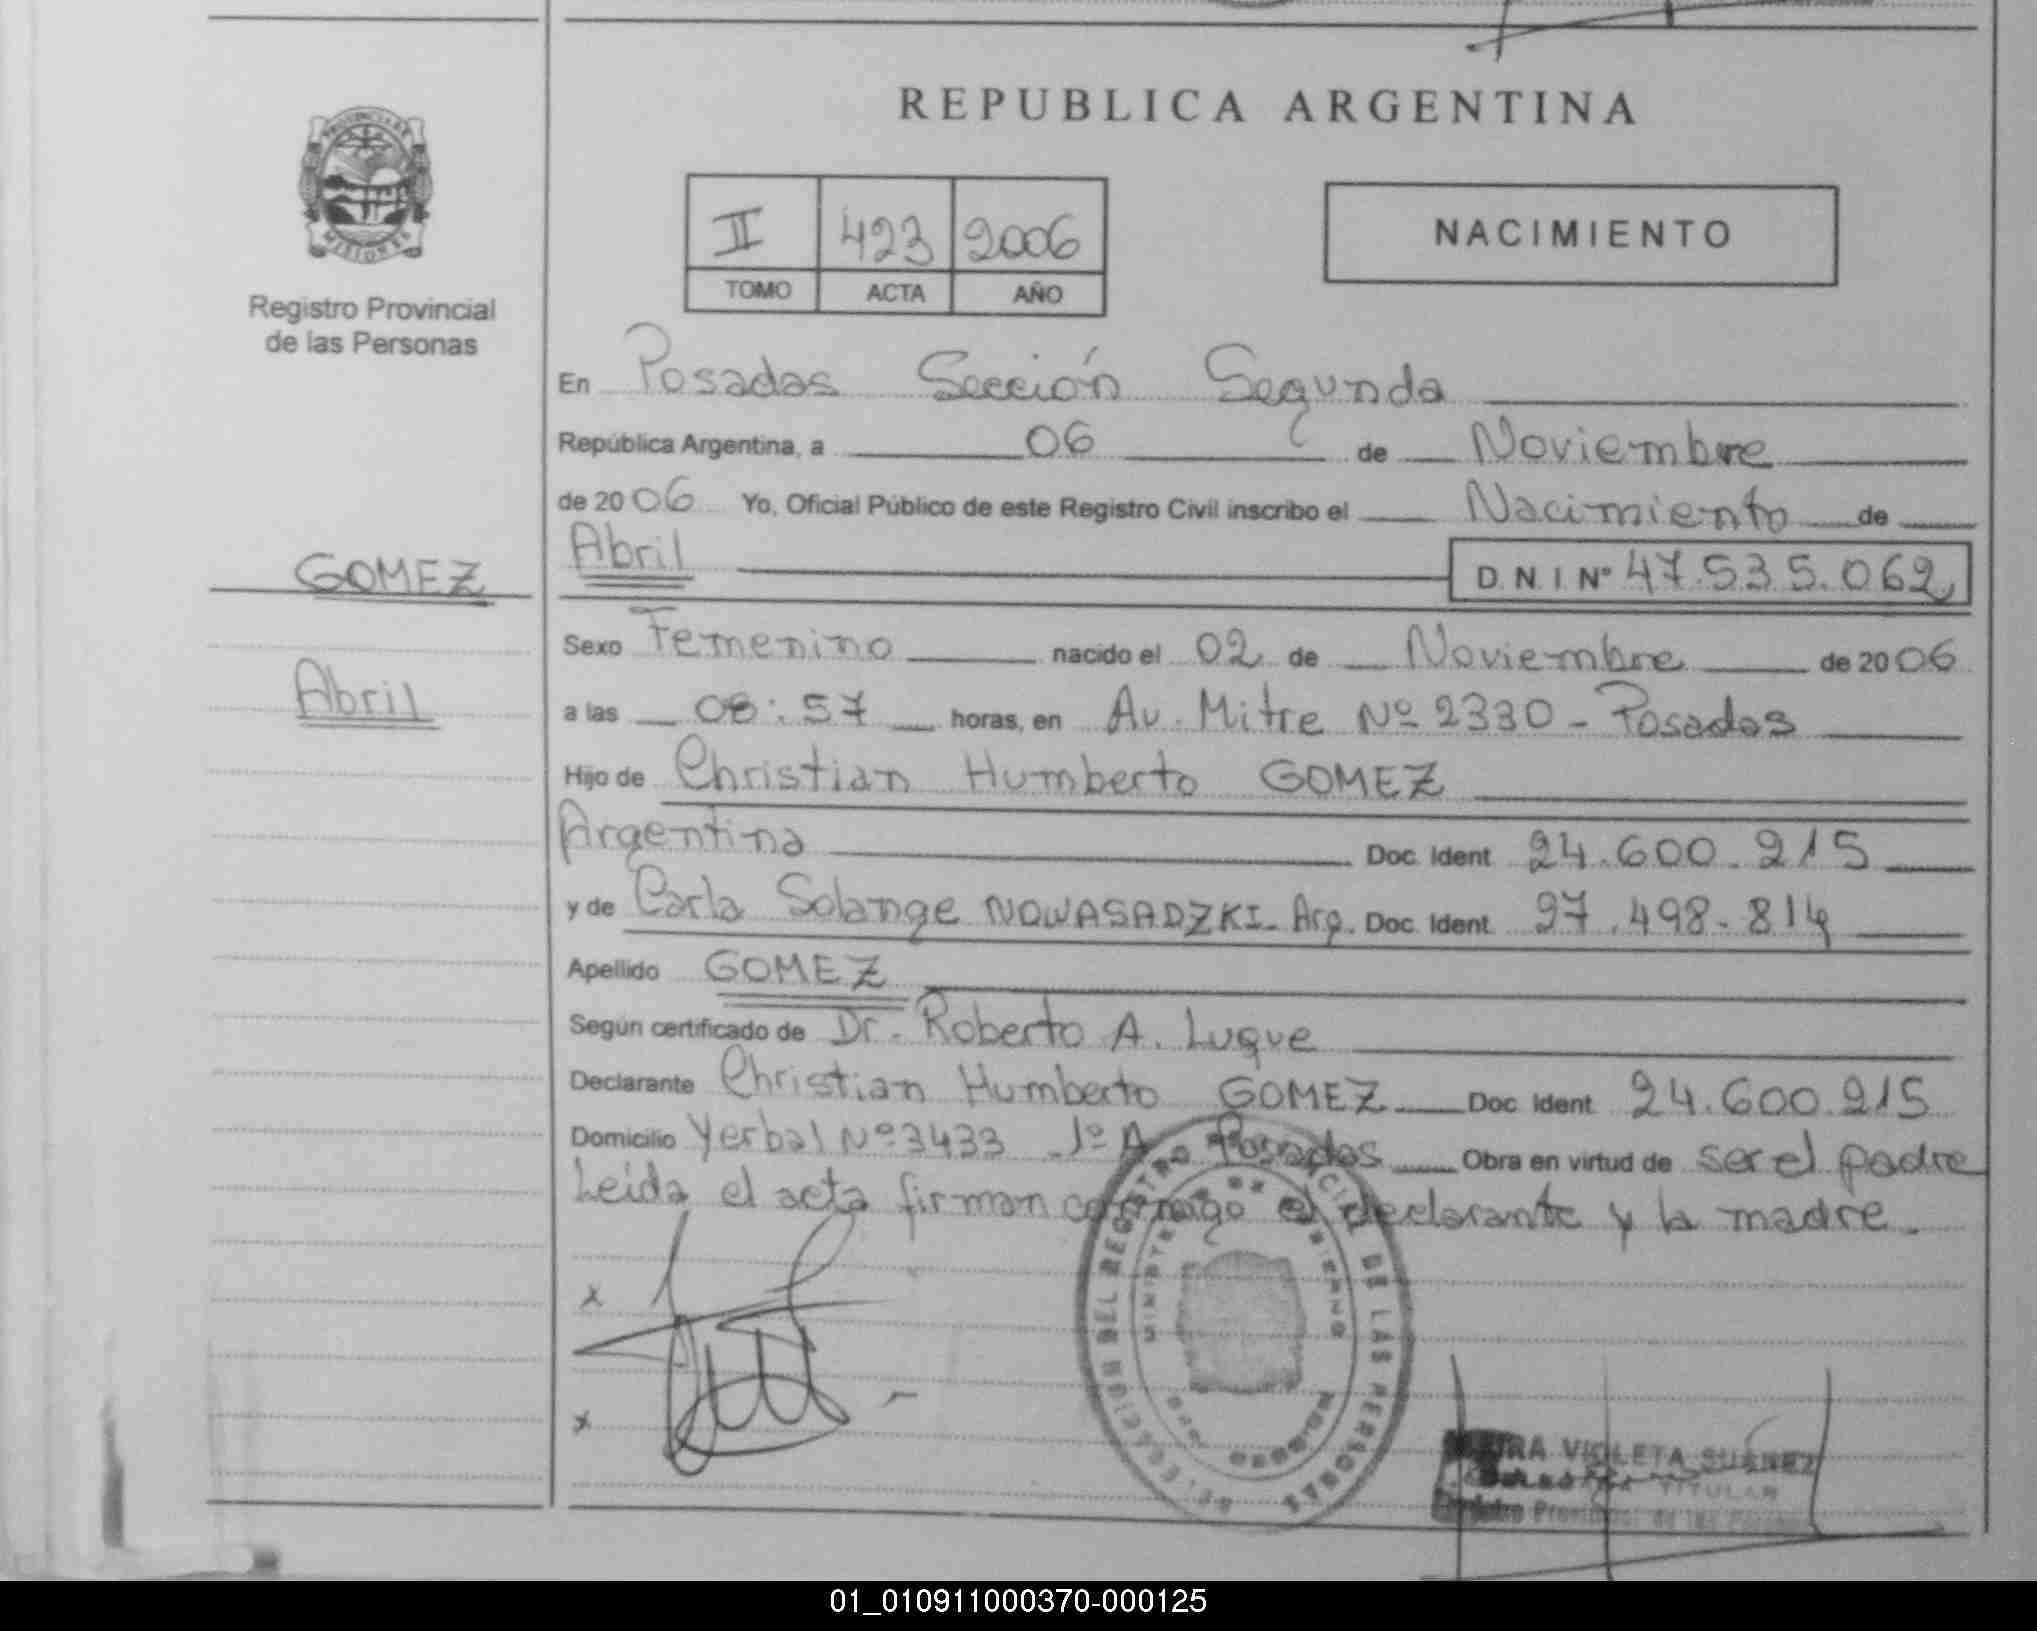 REPUBLICA ARGENTINA
PROVINCIA DE
MISIONES
Registro Provincial
de las Personas
II 423 2006
TOMO ACTA AÑO
NACIMIENTO
En Posadas Sección Segunda
República Argentina, a 06 de Noviembre
de 2006 Yo, Oficial Público de este Registro Civil inscribo el Nacimiento de
GOMEZ
Abril D.N.I. Nº 47.535.062
Sexo Femenino nacido el 02 de Noviembre de 2006
Abril
a las 08:57 horas, en Av. Mitre Nº 2330 - Posadas
Hijo de Christian Humberto GOMEZ
Argentina Doc. Ident 24.600.215
y de Carla Solange NOWASADZKI. Arg. Doc. Ident. 27.498.814
Apellido GOMEZ
Según certificado de Dr. Roberto A. Luque
Declarante Christian Humberto GOMEZ Doc Ident. 24.600.215
Domicilio Yerbal Nº 3433 1º A Posadas Obra en virtud de ser el padre
Leida el acta firman conmigo el declarante y la madre.
x
x
DEL REGISTRO PROVINCIAL DE LAS PERSONAS
MINISTERIO DE GOBIERNO
VIOLETA SUAREZ
TITULAR
Registro Provincial de las Personas
01_010911000370-000125